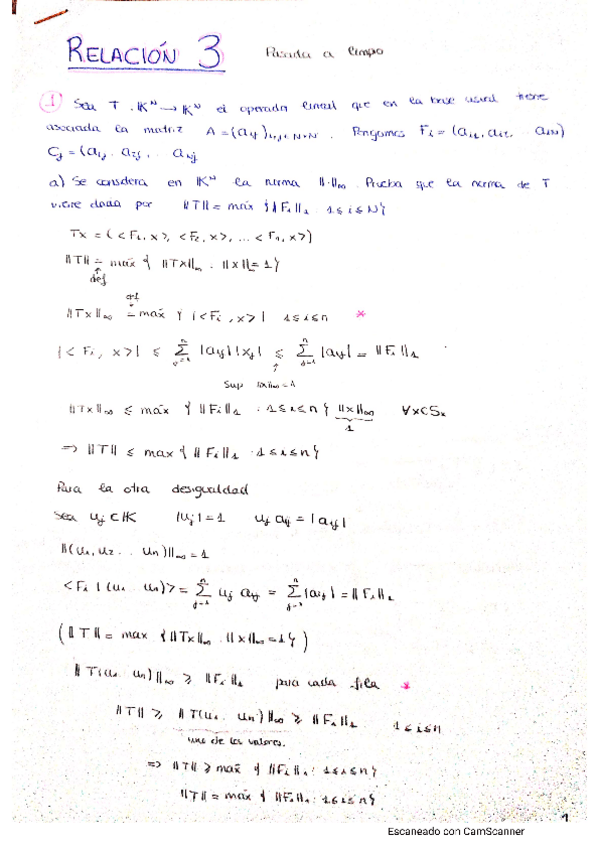 RELACIÓN 3 Pasada a limpo
① Sea T . IKᴺ → IKᴺ el operador lineal que en la base usual tiene
asociada la matriz A = (aij)i,j∈N×N . Pongamos Fi = (ai1, ai2, ... aiN)
Cj = (a1j . a2j, . . aNj
a) Se considera en IKᴺ la norma ‖·‖∞. Prueba que la norma de T
viene dada por ‖T‖ = máx {‖Fi‖1 . 1≤i≤N}
Tx = (<F1, x>, <F2, x>, ... <Fn, x>)
‖T‖ = máx { ‖Tx‖∞ . ‖x‖ = 1}
def
def
‖Tx‖∞ = máx { |<Fi, x>| 1≤i≤n *
|<Fi, x>| ≤ Σ |aij| |xj| ≤ Σ |aij| = ‖Fi‖1
Sup ‖x‖∞=1
‖Tx‖∞ ≤ máx { ‖Fi‖1 : 1≤i≤n} ‖x‖∞ ∀x∈Sx
1
=> ‖T‖ ≤ max { ‖Fi‖1 . 1≤i≤n}
Para la otra desigualdad
Sea uj ∈ IK |uj| = 1 uj aij = |aij|
‖(u1, u2 . . . un)‖∞ = 1
<Fi | (u1 .. un)> = Σ uj aij = Σ |aij| = ‖Fi‖1
(‖T‖ = max {‖Tx‖∞ . ‖x‖∞ = 1})
‖T(u1 .. un)‖∞ ≥ ‖Fi‖1 para cada fila *
‖T‖ ≥ ‖T(u1 .. un)‖∞ ≥ ‖Fi‖1 1≤i≤n
uno de los valores.
=> ‖T‖ ≥ máx { ‖Fi‖1 : 1≤i≤n}
‖T‖ = máx { ‖Fi‖1 : 1≤i≤n}
1
Escaneado con CamScanner